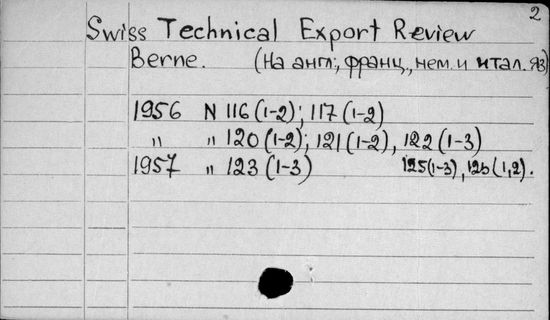 2
Swiss Technical Export Review
Berne. (На англ., франц., нем. и итал. яз)
1956 N 116 (1-2); 117 (1-2)
" " 120 (1-2); 121 (1-2), 122 (1-3)
1957 " 123 (1-3) 125 (1-3), 126 (1,2).